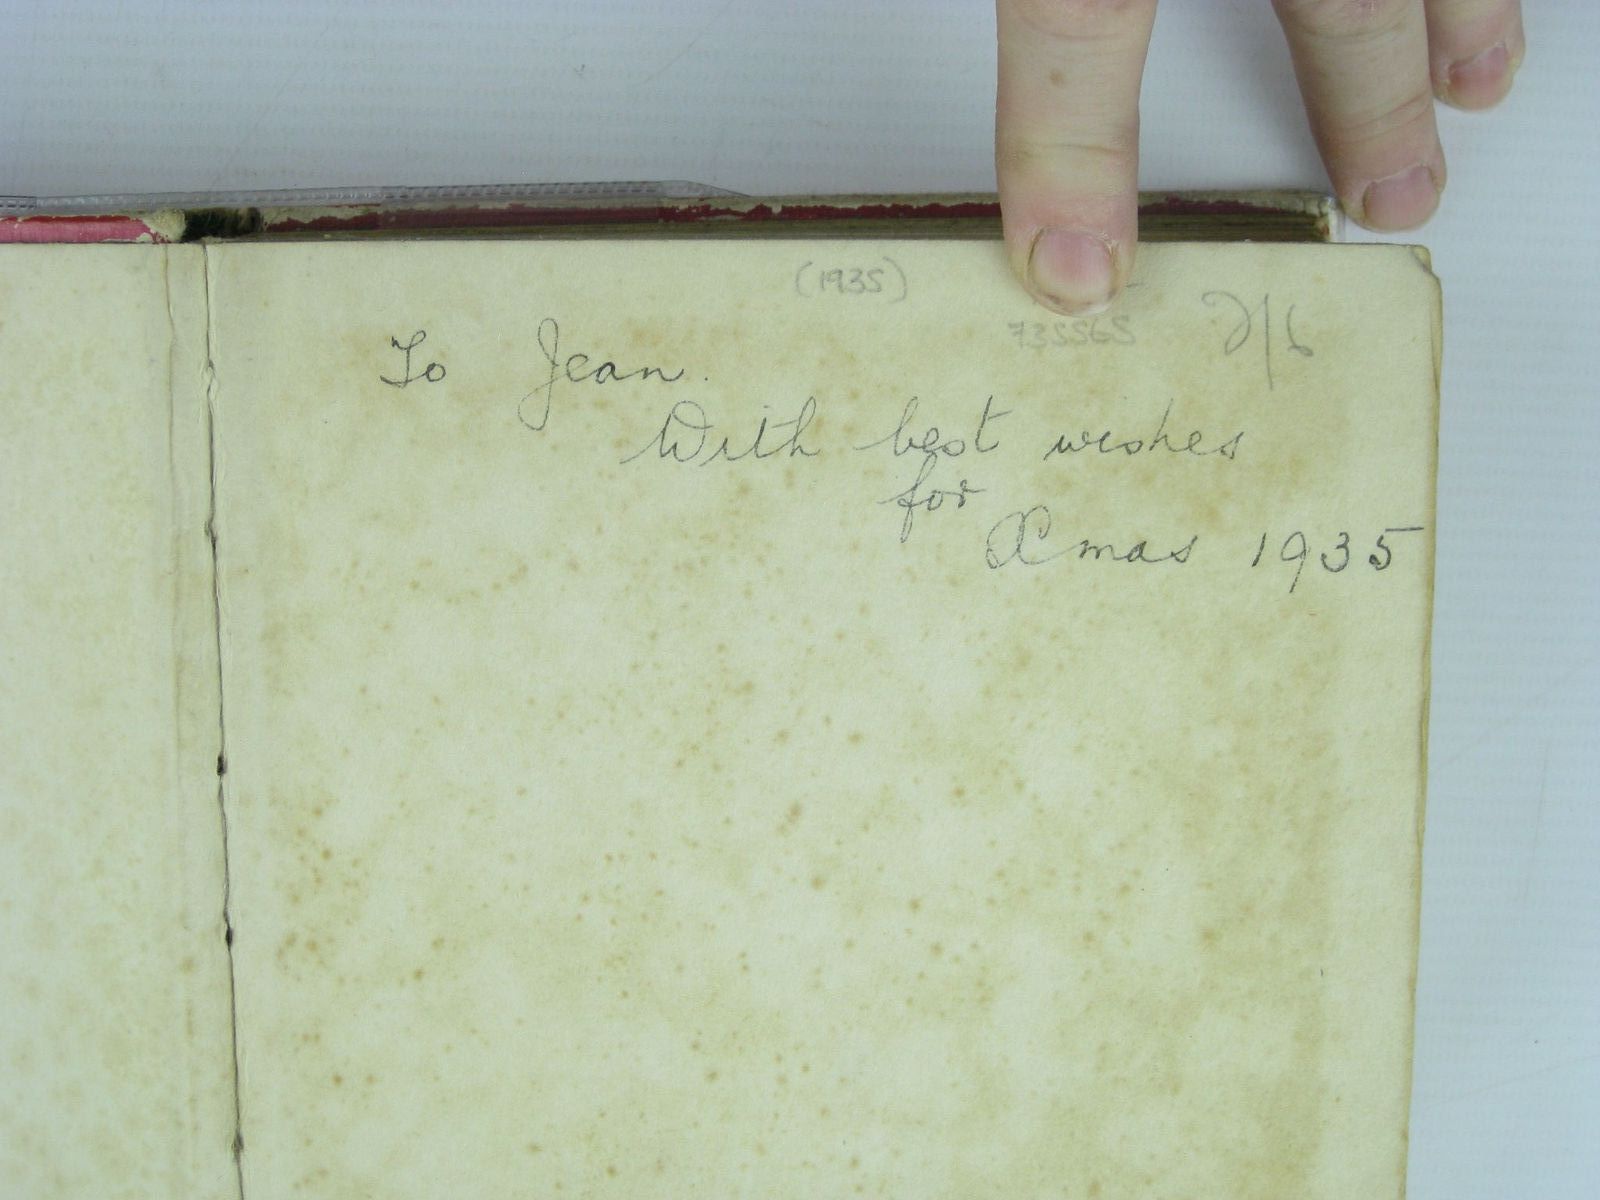 (1935)
735565
2/6
To Jean.
With best wishes
for
Xmas 1935